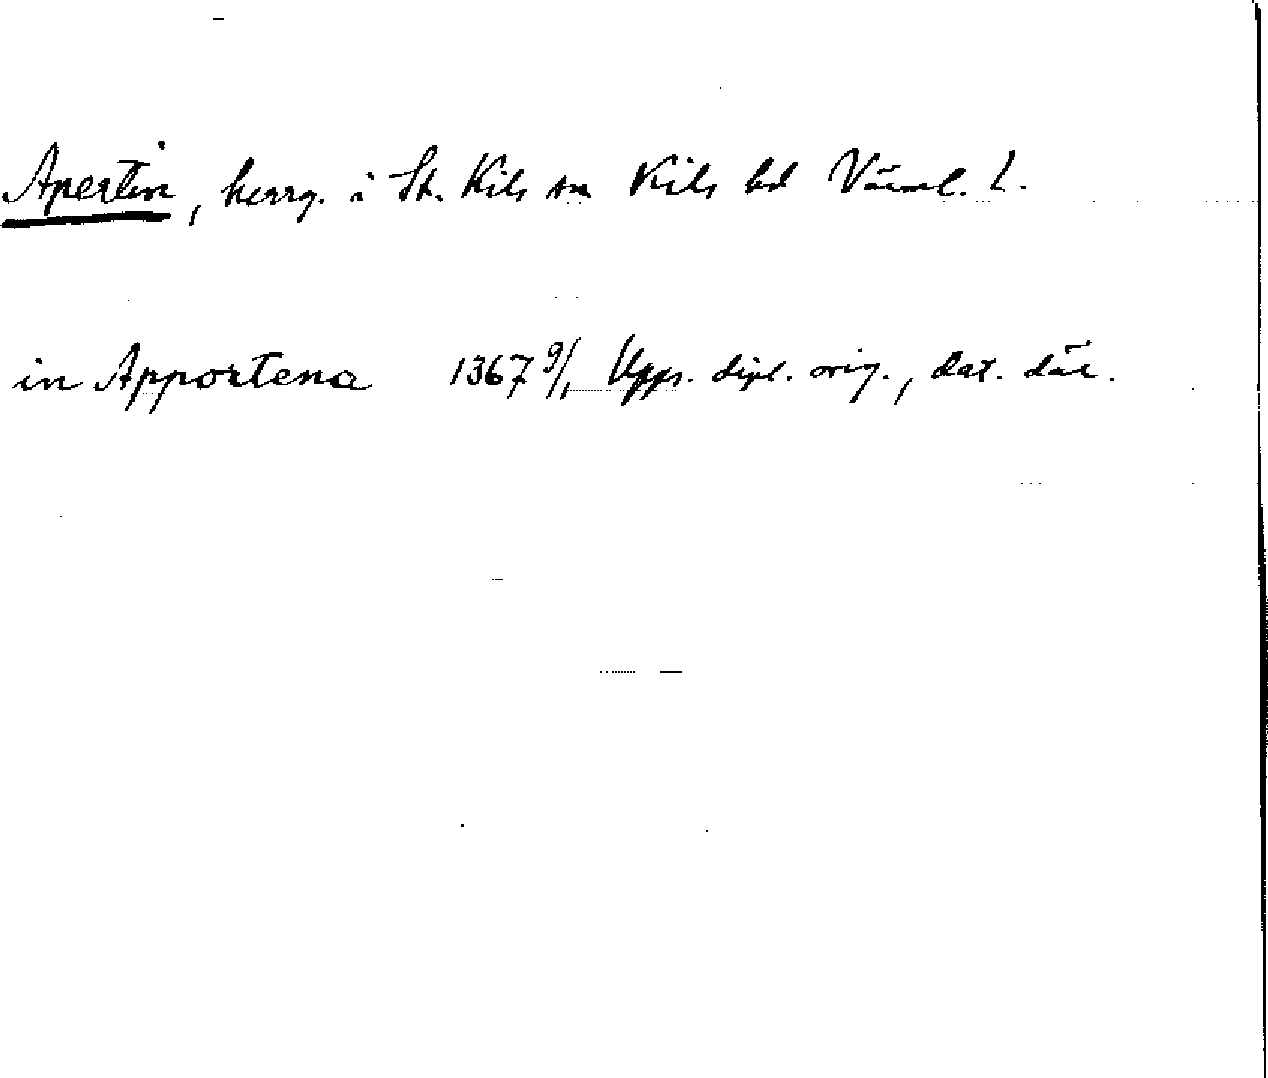 Apertin, herrg. i St. Kils sn Kils hd Värml. l.
in Apportena 1367 9/1 Upps. dipl. orig., dat. där.